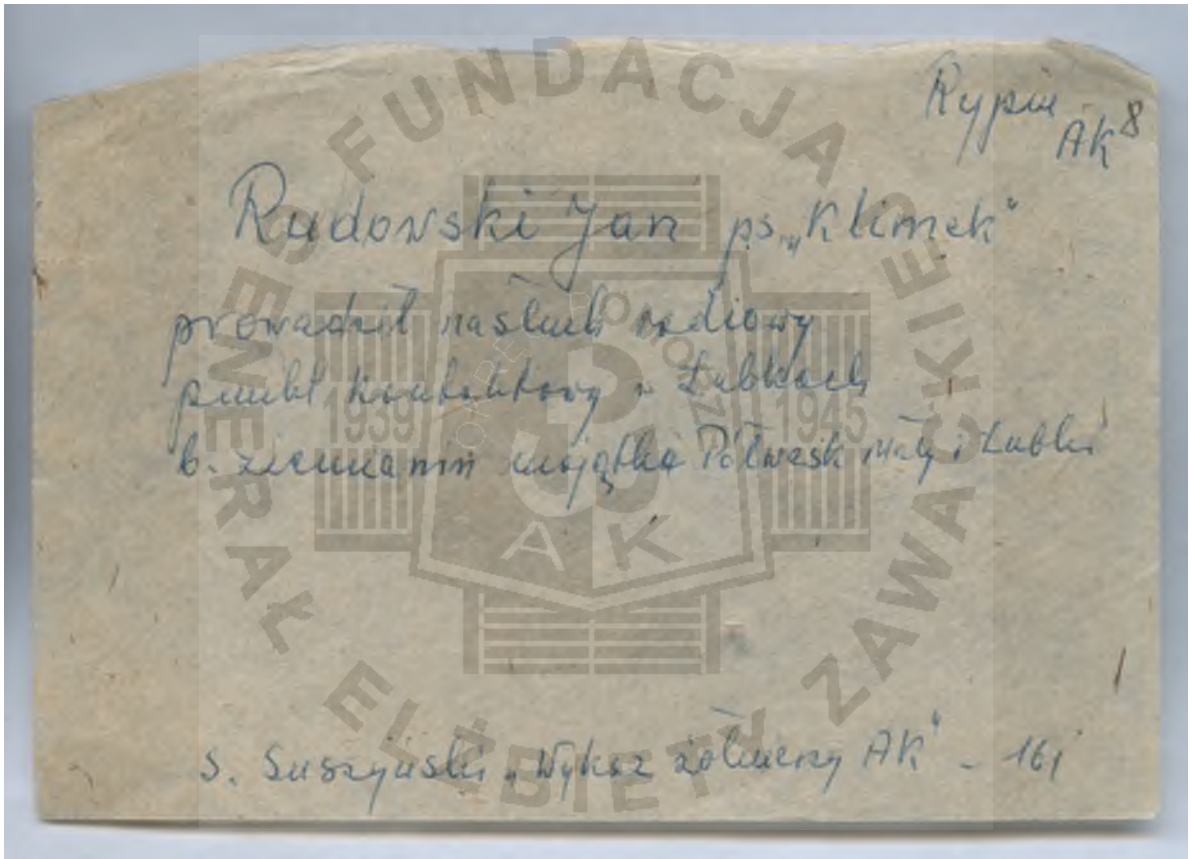 Rypin
AK 8
Rudowski Jan ps. „Klimek"
prowadził nasłuch radiowy
punkt kontaktowy w Łubkach
b. ziemianin majątku Półwiesk Mały i Łubki
S. Suszyński „Wykaz żołnierzy AK" -
FUNDACJA GENERAŁ ELŻBIETY ZAWACKIEJ
1939 1945
AK